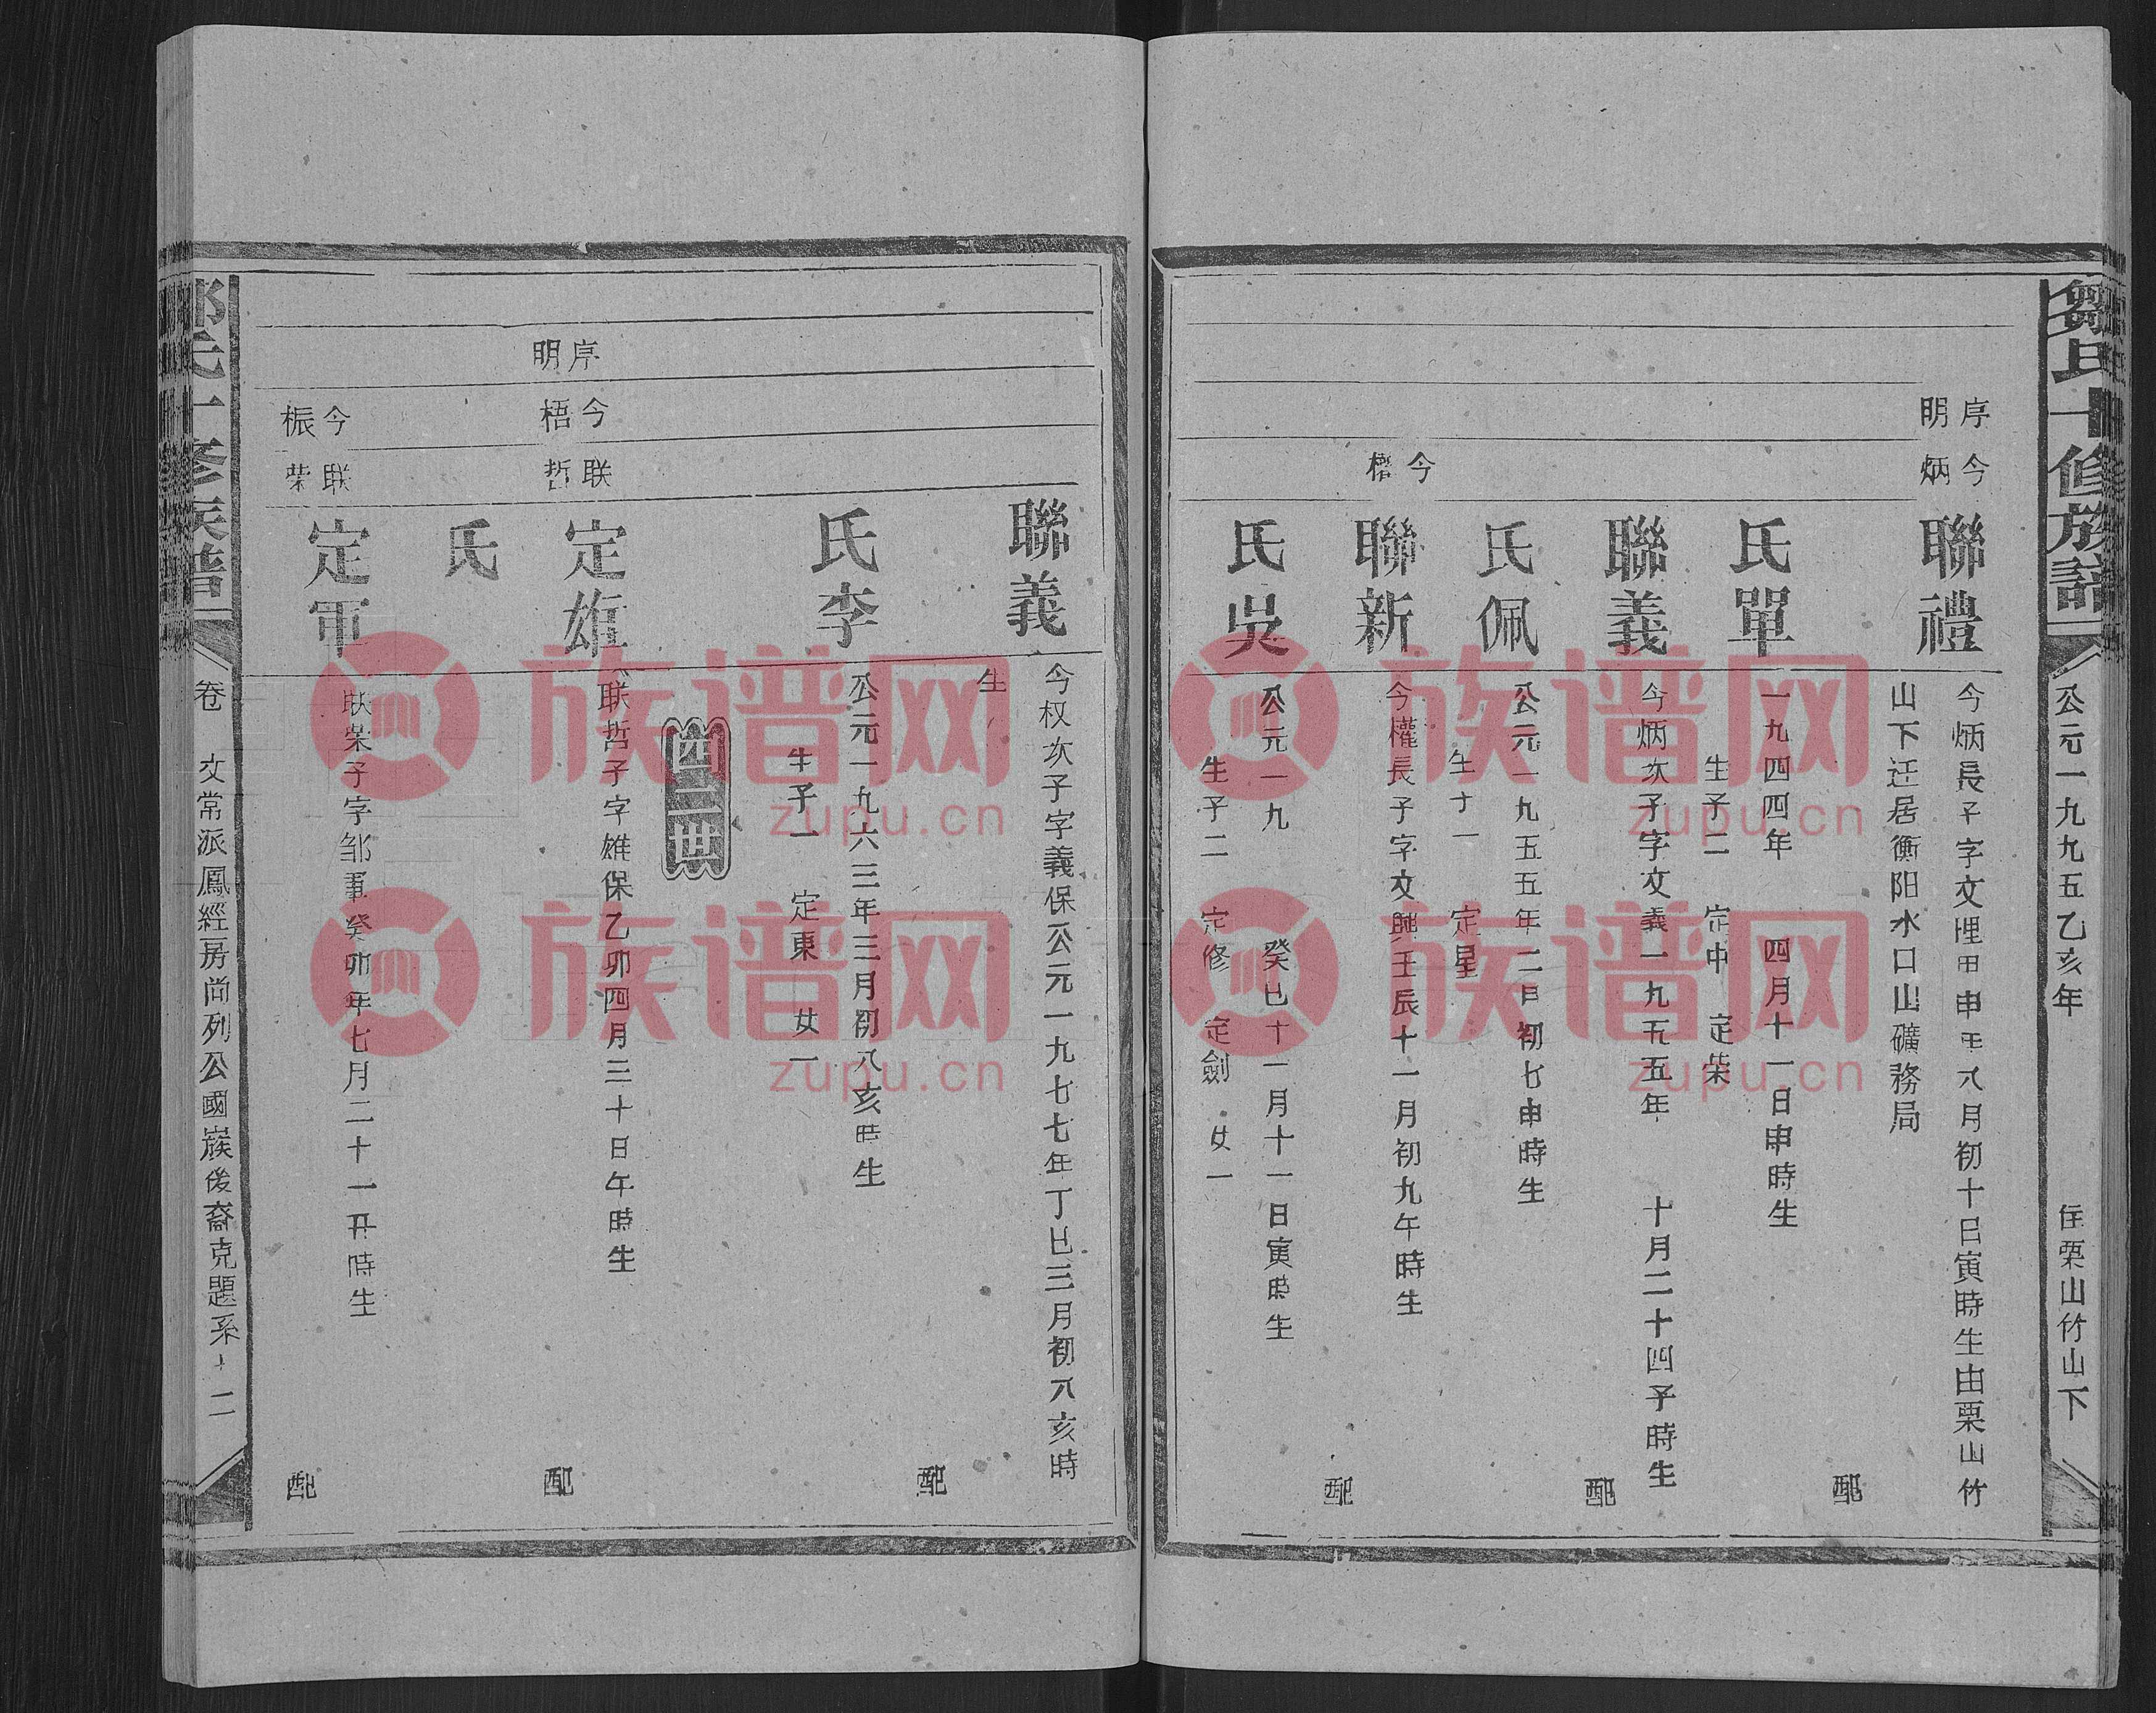 鄒氏十修族譜
公元一九九五乙亥年
住栗山竹山下
序明
今炳
聯禮
今炳長子字文理甲申年八月初十日寅時生由栗山竹
山下迁居衡阳水口山礦務局
配
單氏
一九四四年 四月十一日申時生
生子二 定中 定柴
聯義
今炳次子字文義一九五五年 十月二十四子時生
配
佩氏
公元一九五五年二月初七申時生
生子一 定星
今權
聯新
今權長子字文興壬辰十一月初九午時生
配
吳氏
公元一九 癸巳十一月十一日寅時生
生子二 定修 定劍 女一
聯義
今权次子字義保公元一九七七年丁巳三月初八亥時
生
配
李氏
公元一九六三年三月初八亥時生
生子一 定東 女一
四二世
序明
今梧
联哲
定雄
联哲子字雄保乙卯四月三十日午時生
配
氏
今振
联柴
定軍
联柴子字邹軍癸卯年七月二十一丑時生
配
邹氏十修族譜
卷 文常派鳳經房尚列公國嶷後裔克題系 十二
族谱网
zupu.cn
族谱网
zupu.cn
族谱网
zupu.cn
族谱网
zupu.cn